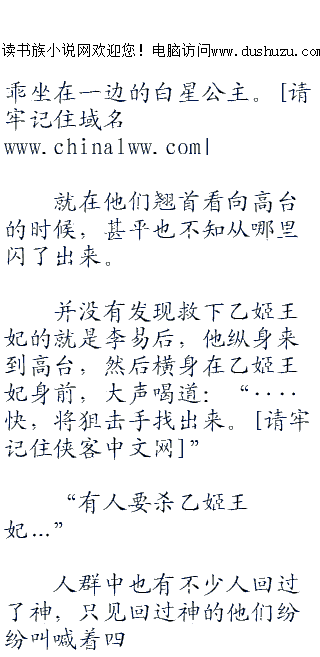 读书族小说网欢迎您！电脑访问www.dushuzu.com
乖坐在一边的白星公主。[请
牢记住域名
www.china1ww.com|
就在他们翘首看向高台
的时候，甚平也不知从哪里
闪了出来。
并没有发现救下乙姬王
妃的就是李易后，他纵身来
到高台，然后横身在乙姬王
妃身前，大声喝道：“····
快，将狙击手找出来。[请牢
记住侠客中文网]”
“有人要杀乙姬王
妃…”
人群中也有不少人回过
了神，只见回过神的他们纷
纷叫喊着四